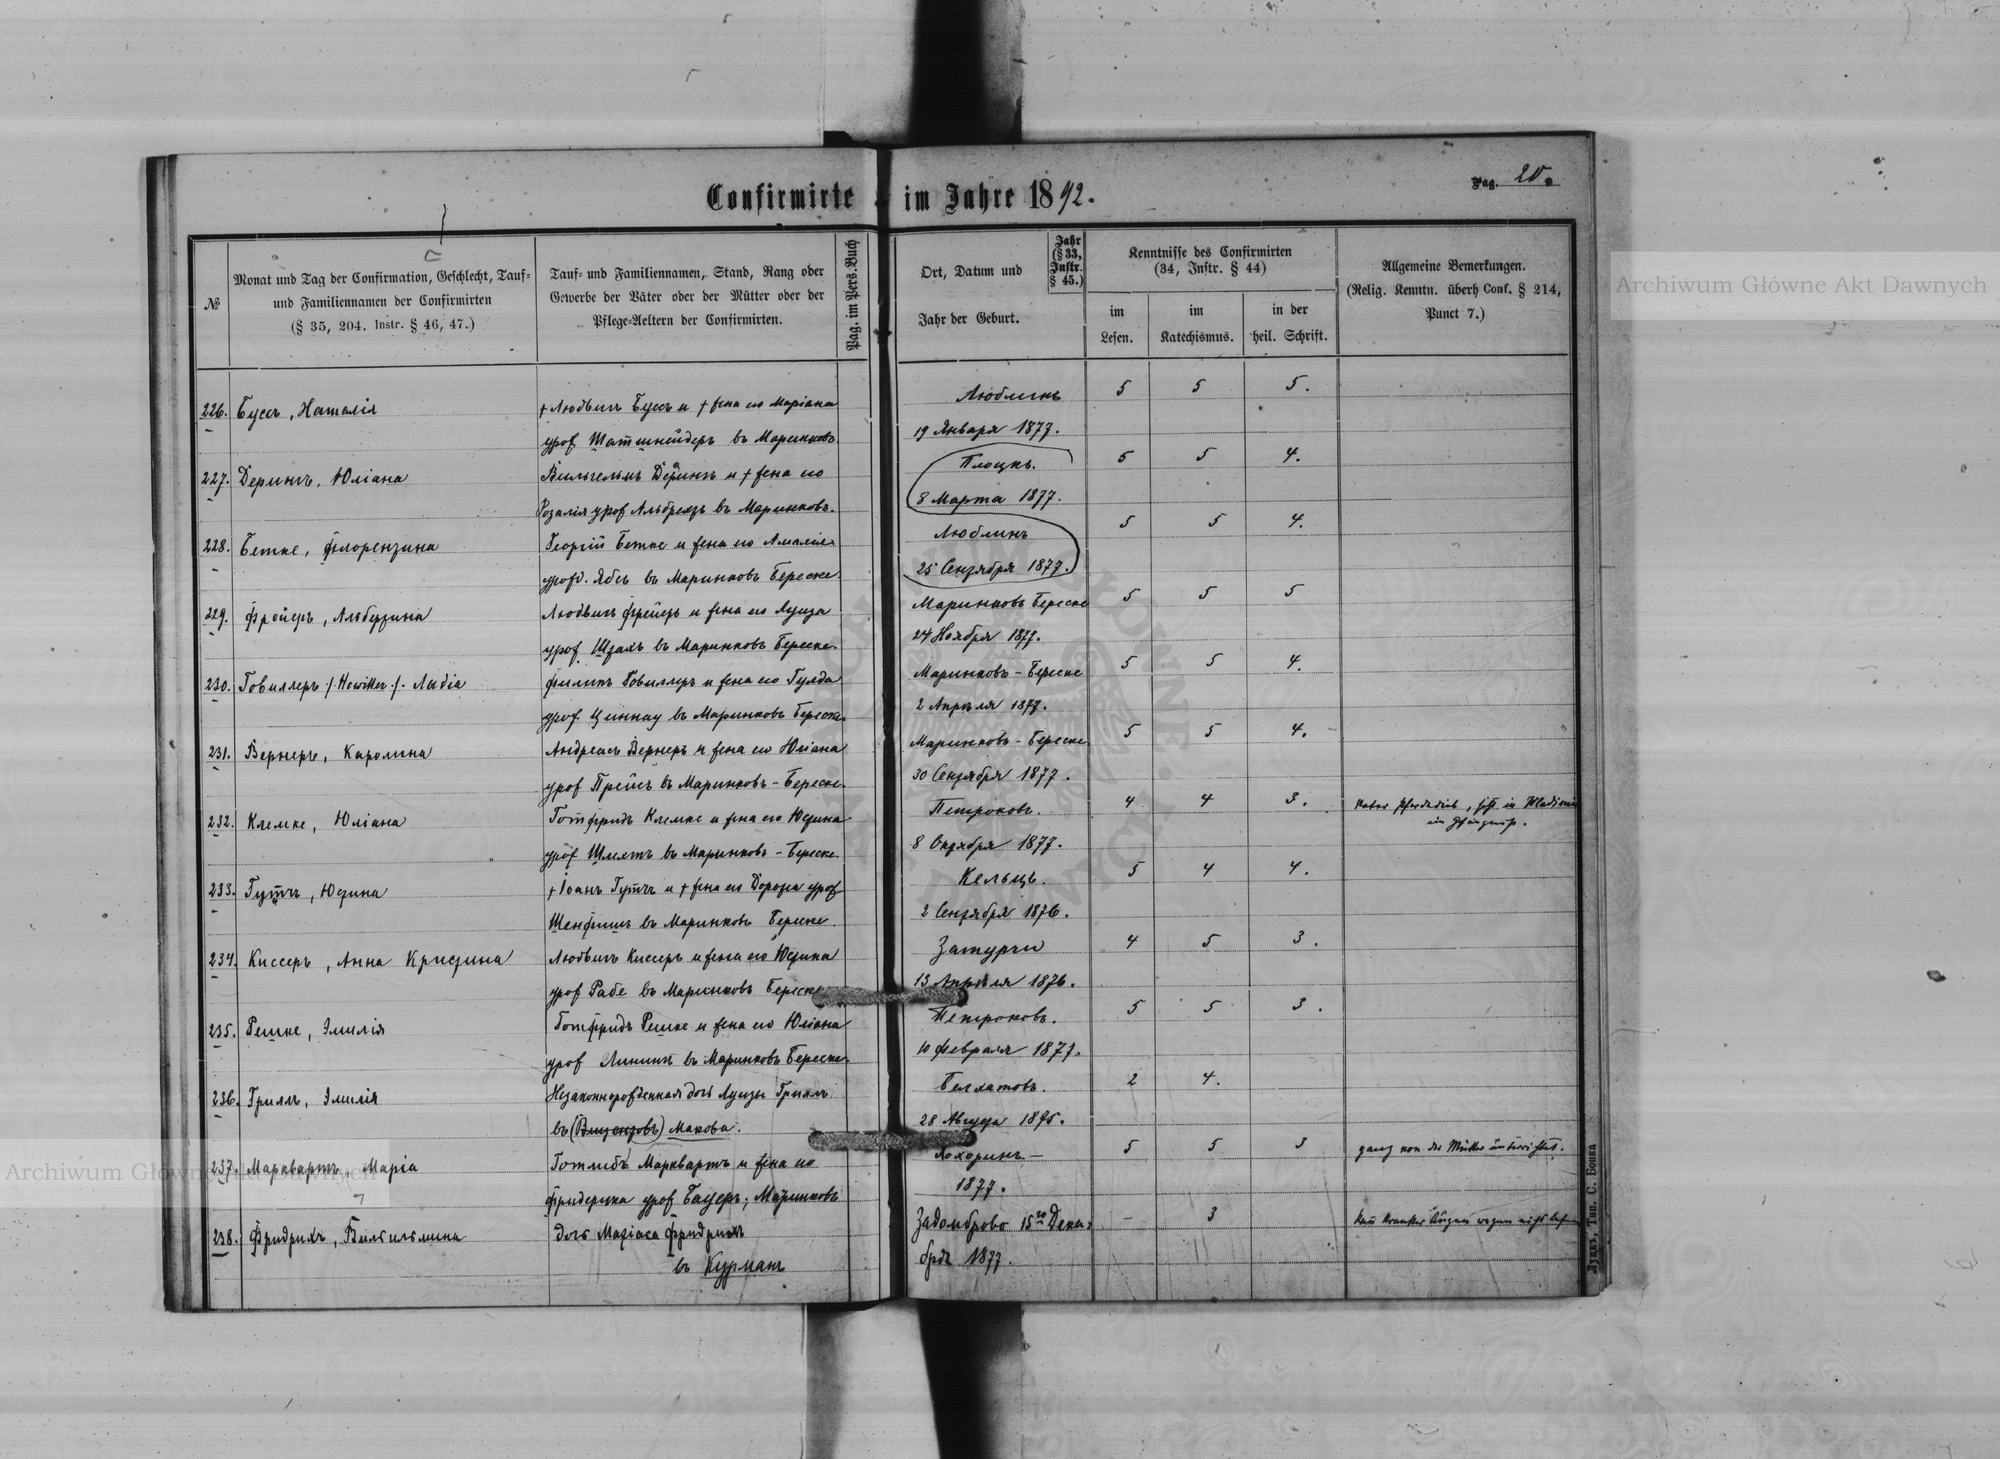 Confirmirte im Jahre 1892.
Pag. 20.
№
Monat und Tag der Confirmation, Geschlecht, Tauf-
und Familiennamen der Confirmirten
(§ 35, 204. Instr. § 46, 47.)
Tauf- und Familiennamen, Stand, Rang oder
Gewerbe der Väter oder der Mütter oder der
Pflege-Aeltern der Confirmirten.
Pag. im Pers.Buch
Ort, Datum und
Jahr der Geburt.
Jahr
(§ 33,
Instr.
§ 45.)
Kenntnisse des Confirmirten
(34, Instr. § 44)
im
Lesen.
im
Katechismus.
in der
heil. Schrift.
Allgemeine Bemerkungen.
(Relig. Kenntn. überh Conf. § 214,
Punct 7.)
226. Бусъ, Наталія + Людвигъ Бусъ и + жена его Маріана Люблинъ 5 5 5.
урож Шатшнейдеръ въ Маринковъ 19 Января 1877.
227. Дерингъ, Юліана Вильгельмъ Дерингъ и + жена его Плоцкъ. 5 5 4.
Розалія урож Альбрехтъ въ Маринковъ. 8 Марта 1877.
228. Бетке, Флорентина Георгій Бетке и жена его Амалія Люблинъ 5 5 4.
урожд. Ябсъ въ Маринковъ Береске 25 Сентября 1877.
229. Фрейеръ, Альбертина Людвигъ Фрейеръ и жена его Луиза Маринковъ Береске 5 5 5
урож Шталь въ Маринковъ Береске 24 Ноября 1877.
230. Говиллеръ /: Howiller :/. Лидія Филипъ Говиллеръ и жена его Гулда Маринковъ - Береске 5 5 4.
урож Циннау въ Маринковъ Береске. 2 Апрѣля 1877.
231. Вернеръ, Каролина Андреасъ Вернеръ и жена его Юліана Маринковъ - Береске 5 5 4.
урож Прейсъ въ Маринковъ - Береске. 30 Сентября 1877.
232. Клемке, Юліана Готфридъ Клемке и жена его Юстина Петроковъ. 4 4 3. Vater Pferdedieb, sitzt in Wladimir
im Gefängniss.
урож Шмитъ въ Маринковъ - Береске. 8 Октября 1877.
233. Гутчъ, Юстина + Іоанъ Гутчъ и + жена его Дорота урож Кельцъ. 5 4 4.
Шенфишъ въ Маринковъ Береске. 2 Сентября 1876.
234. Киссеръ, Анна Кристина Людвигъ Киссеръ и жена его Юстина Затурчи 4 5 3.
урож Рабе въ Маринковъ Береске 13 Апрѣля 1876.
235. Решке, Эмилія Готфридъ Решке и жена его Юліана Петроковъ. 5 5 3.
урож въ Маринковъ Береске. 10 Февраля 1877.
236. Грилъ, Эмилія Незаконнорожденная дочь Луизы Гриль Белхатовъ. 2 4.
въ Макова. 28 Августа 1875.
237. Марквартъ, Марія Готлибъ Марквартъ и жена его 5 5 3 ganz von der Mutter unterrichtet.
Фридерика урож Бауеръ; Маринковъ 1877.
238. Фридрихъ, Вильгельмина дочь Матіаса Фридрихъ Задомброво 15го Дека- – 3
въ Курманъ бря 1877.
Луцкъ, Тип. С. Бонка
Archiwum Główne Akt Dawnych
Archiwum Główne Akt Dawnych